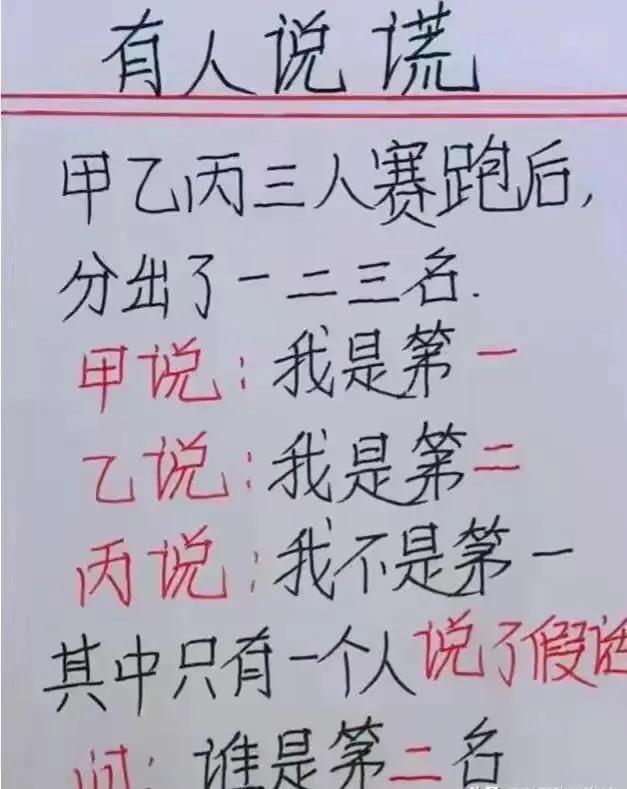 有人说谎
甲乙丙三人赛跑后,
分出了一二三名.
甲说:我是第一
乙说:我是第二
丙说:我不是第一
其中只有一个人说了假话
问:谁是第二名